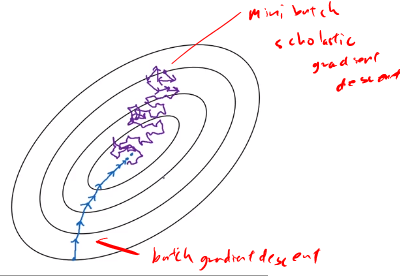 mini butch
scholastic
gradient
descent
batch gradient descent